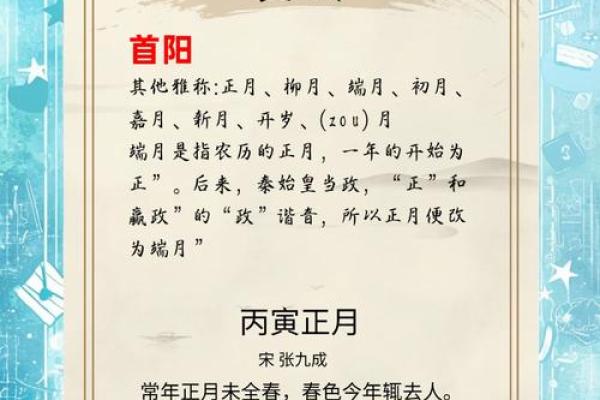 首阳
其他雅称:正月、柳月、端月、初月、
嘉月、新月、开岁、(zou)月
端月是指农历的正月，一年的开始为
正”。后来，秦始皇当政，“正”和
嬴政”的“政”谐音，所以正月便改
为端月”
丙寅正月
宋 张九成
常年正月未全春，春色今年辄去人。